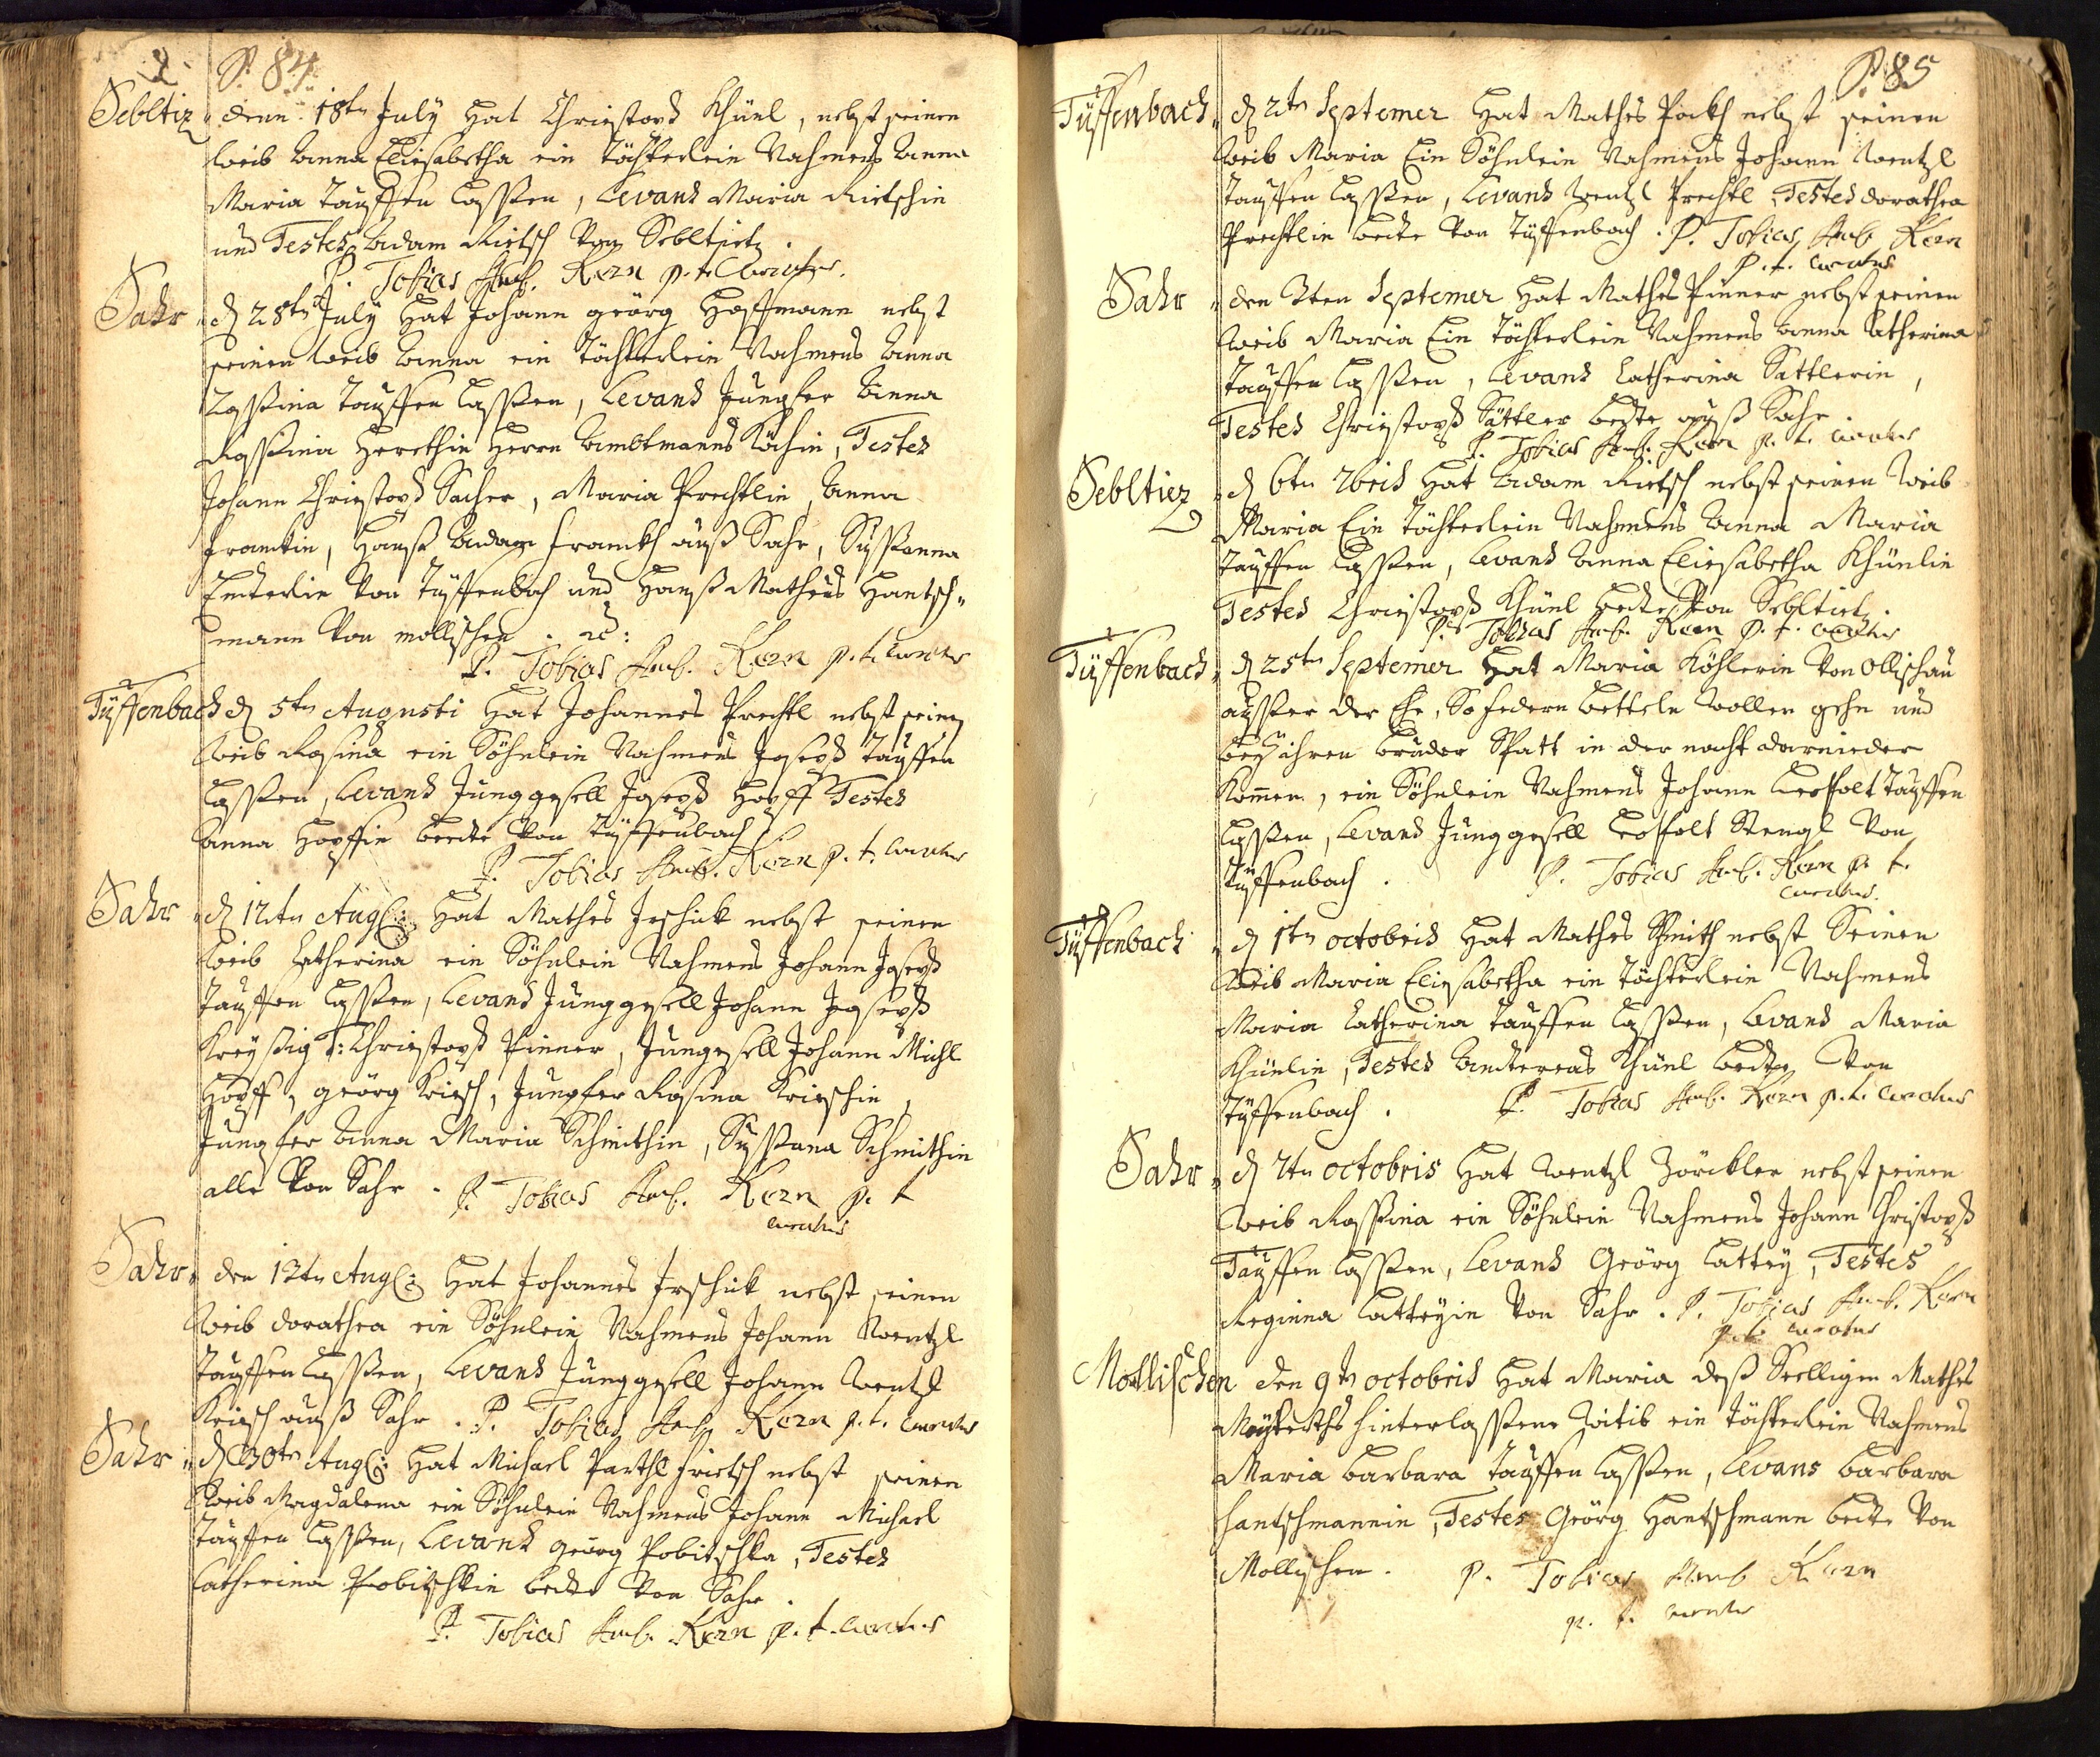 P. 84
Sebltiz denn 18tn July hat Christoph Khünl, nebst seinen
weib Anna Eliesabetha ein töchterlein Nahmens Anna
Maria tauffen lassen, Levans Maria Rietschin
und Testes Adam Rietsch von Sebltietz.
P. Tobias Amb. Kern p. t. Curatus.
Sahr d 28tn July hat Johann georg Hoffmann nebst
seinen weib Anna ein töchterlein Nahmens Anna
Rossina tauffen lassen, Levans Jungfer Anna
Rossina Herrn Ambtmanns Köchin, Testes
Johann Christoph Sacher, Maria Prechtlin, Anna
franckin, Hanß Adam franckh auß Sahr, Sussanna
von Tüffenbach und Hanß Matheus Hantsch-
mann von mollischen.
P. Tobias Amb. Kern p. t. Curatus
Tüffenbach d 5tn Augusti hat Johannes Prechtl nebst seinen
weib Rosina ein Söhnlein Nahmens Joseph tauffen
lassen, Levans Junggesell Joseph Hopff Testes
Anna Hopffin beede von Tüffenbach
P. Tobias Amb. Kern p. t. Curatus
Sahr d 12tn Aug: hat Mathes Jrschick nebst seinen
weib Catherina ein Söhnlein Nahmens Johann Joseph
tauffen lassen, Levans Junggesell Johann Joseph
Kreyssig T: Christoph Pinner, Junggesell Johann Michl
Hopff, georg Kriesch, Jungfer Rosina Krieschin,
Jungfer Anna Maria Schmithin, Sussana Schmithin
alle von Sahr. P. Tobias Amb. Kern p. t
curatus
Sahr den 13tn Aug: hat Johannes Jrschick nebst seinen
weib dorathea ein Söhnlein Nahmens Johann Wentzl
tauffen lassen, Levans Junggesell Johann Wentzl
Kriesch auß Sahr. P. Tobias Amb. Kern p. t. Curatus
Sahr d 30tn Aug: hat Michael Parthl frietsch nebst seinen
weib Magdalena ein Söhnlein Nahmens Johann Michael
tauffen lassen, Levans georg Pobitschka, Testes
Catherina Pobitschkin beede von Sahr.
P. Tobias Amb. Kern p. t. Curatus
P. 85
Tüffenbach d 2tn Septemer hat Mathes Pockh nebst seinen
weib Maria Ein Söhnlein Nahmens Johann Wentzl
tauffen lassen, Levans Wentzl Prechtl, Testes dorathea
Prechtlin beede von Tüffenbach. P. Tobias Amb Kern
p. t. Curatus
Sahr den 3ten Septemer hat Mathes Pinner nebst seinen
weib Maria Ein töchterlein Nahmens Anna Catherina
tauffen lassen, Levans Catherina Sattlerin,
Testes Christoph Sattler beede auß Sahr.
P. Tobias Amb. Kern p. t. Curatus
Sebltiez d 6tn 7bris hat Adam Rietsch nebst seinen weib
Maria Ein töchterlein Nahmens Anna Maria
tauffen lassen, Levans Anna Eliesabetha Khünlin
Testes Christoph Khünl beede von Sebltietz.
P. Tobias Amb. Kern p. t. Curatus
Tüffenbach d 25tn Septemer hat Maria Köhlerin von Ollischau
ausser der Ehe, So federn betteln wollen gehn und
bey ihren bruder Spatt in der nacht darnieder
kommen, ein Söhnlein Nahmens Johann Leopolt tauffen
lassen, Levans Junggesell Leopolt Stengl von
Tüffenbach. P. Tobias Amb. Kern p. t.
Curatus.
Tüffenbach d 1tn octobris hat Mathes Schmith nebst Seinen
weib Maria Eliesabetha ein töchterlein Nahmens
Maria Catherina tauffen lassen, Levans Maria
Khünlin, Testes Andereas Khünl beede von
Tüffenbach. P. Tobias Amb. Kern p. t. Curatus
Sahr d 7tn octobris hat Wentzl Zörckler nebst seinen
weib Rossina ein Söhnlein Nahmens Johann Christoph
Tauffen lassen, Levans Georg Cattey, Testes
Reginna Catteyin von Sahr. P. Tobias Amb. Kern
p. t. Curatus
Mollischen den 9tn octobris hat Maria deß Seelligen Mathes
hinterlassene Witib ein töchterlein Nahmens
Maria barbara tauffen lassen, Levans barbara
hantschmannin, Testes Georg Hantschmann beede von
Mollischen. P. Tobias Amb Kern
p. t. Curatus